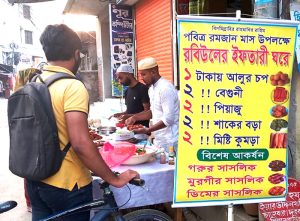 বিসমিল্লাহির রাহমানির রাহিম
পবিত্র রমজান মাস উপলক্ষে
রবিউলের ইফতারী ঘরে
১ টাকায় আলুর চপ
২ !! বেগুনী
২ !! পিয়াজু
২ !! শাকের বড়া
২ !! মিষ্টি কুমড়া
বিশেষ আকর্ষন
গরুর সাসলিক
মুরগীর সাসলিক
ডিমের সাসলিক